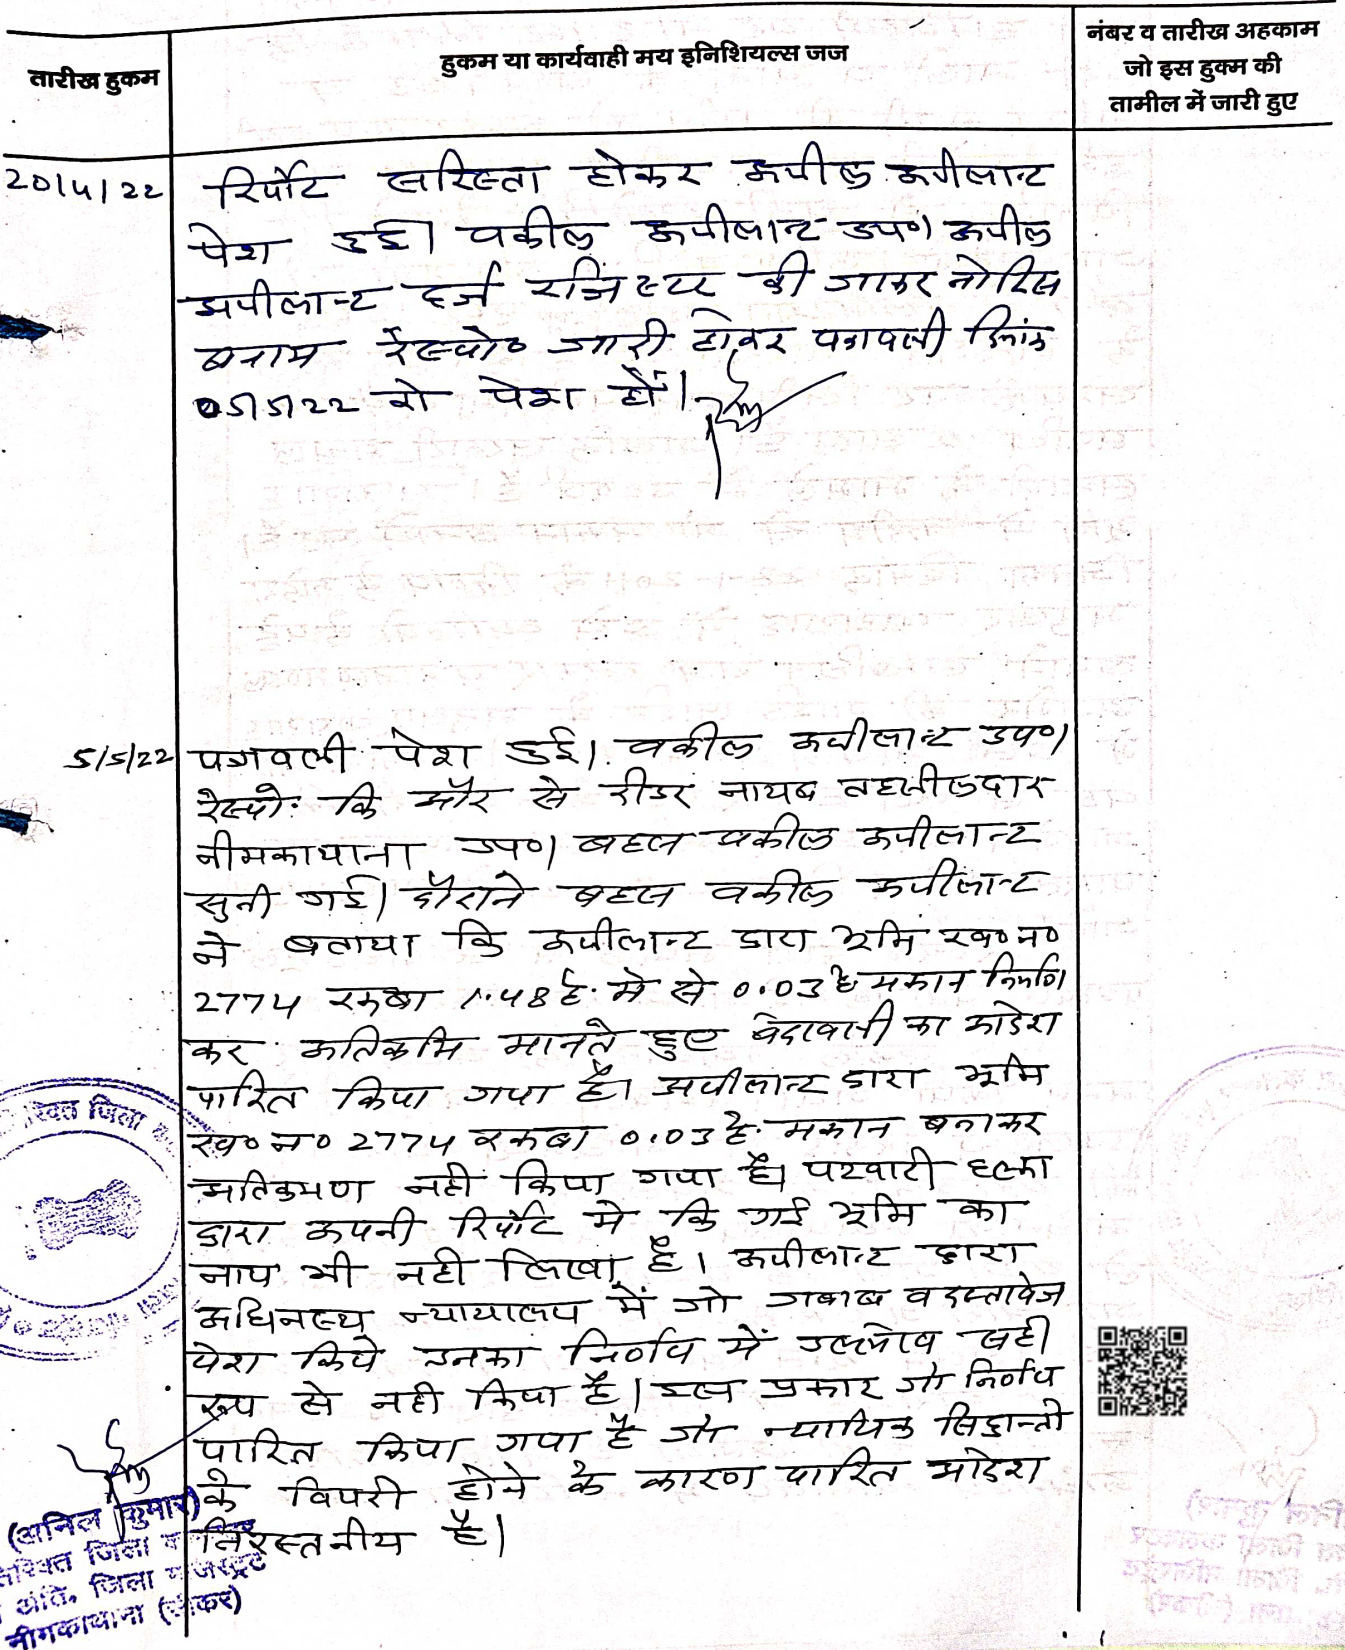 तारीख हुकम
हुकम या कार्यवाही मय इनिशियल्स जज
नंबर व तारीख अहकाम
जो इस हुक्म की
तामील में जारी हुए
20/4/22
रिर्पोट सरिस्ता होकर अपील अपीलान्ट
पेश हुई। वकील अपीलान्ट उप०। अपील
अपीलान्ट दर्ज रजिस्टर की जाकर नोटिस
बनाम रेस्पो० जारी होकर पत्रावली दिनांक
05/5/22 को पेश हो।
5/5/22
पत्रावली पेश हुई। वकील अपीलान्ट उप०।
रेस्पो० कि और से रीडर नायब तहसीलदार
नीमकाथाना उप०। बहस वकील अपीलान्ट
सुनी गई। दौराने बहस वकील अपीलान्ट
ने बताया कि अपीलान्ट द्वारा भूमि ख० न०
2774 रकबा 1.48 है. मे से 0.03 है मकान निर्माण
कर अतिक्रमि मानते हुए बेदखली का आदेश
पारित किया गया है। अपीलान्ट द्वारा भूमि
ख० न० 2774 रकबा 0.03 है. मकान बनाकर
अतिक्रमण नही किया गया है। पटवारी हल्का
द्वारा अपनी रिर्पोट मे कि गई भूमि का
नाप भी नही लिखा है। अपीलान्ट द्वारा
अधिनस्थ न्यायालय में जो जबाब व दस्तावेज
पेश किये उनका निर्णय में उल्लेख सही
रूप से नही किया है। इस प्रकार जो निर्णय
पारित किया गया है जो न्यायिक सिद्वान्तो
के विपरी होने के कारण पारित आदेश
निरस्तनीय है।
(अनिल कुमार)
जिला
अति. जिला मजिस्ट्रेट
नीमकाथाना (सीकर)